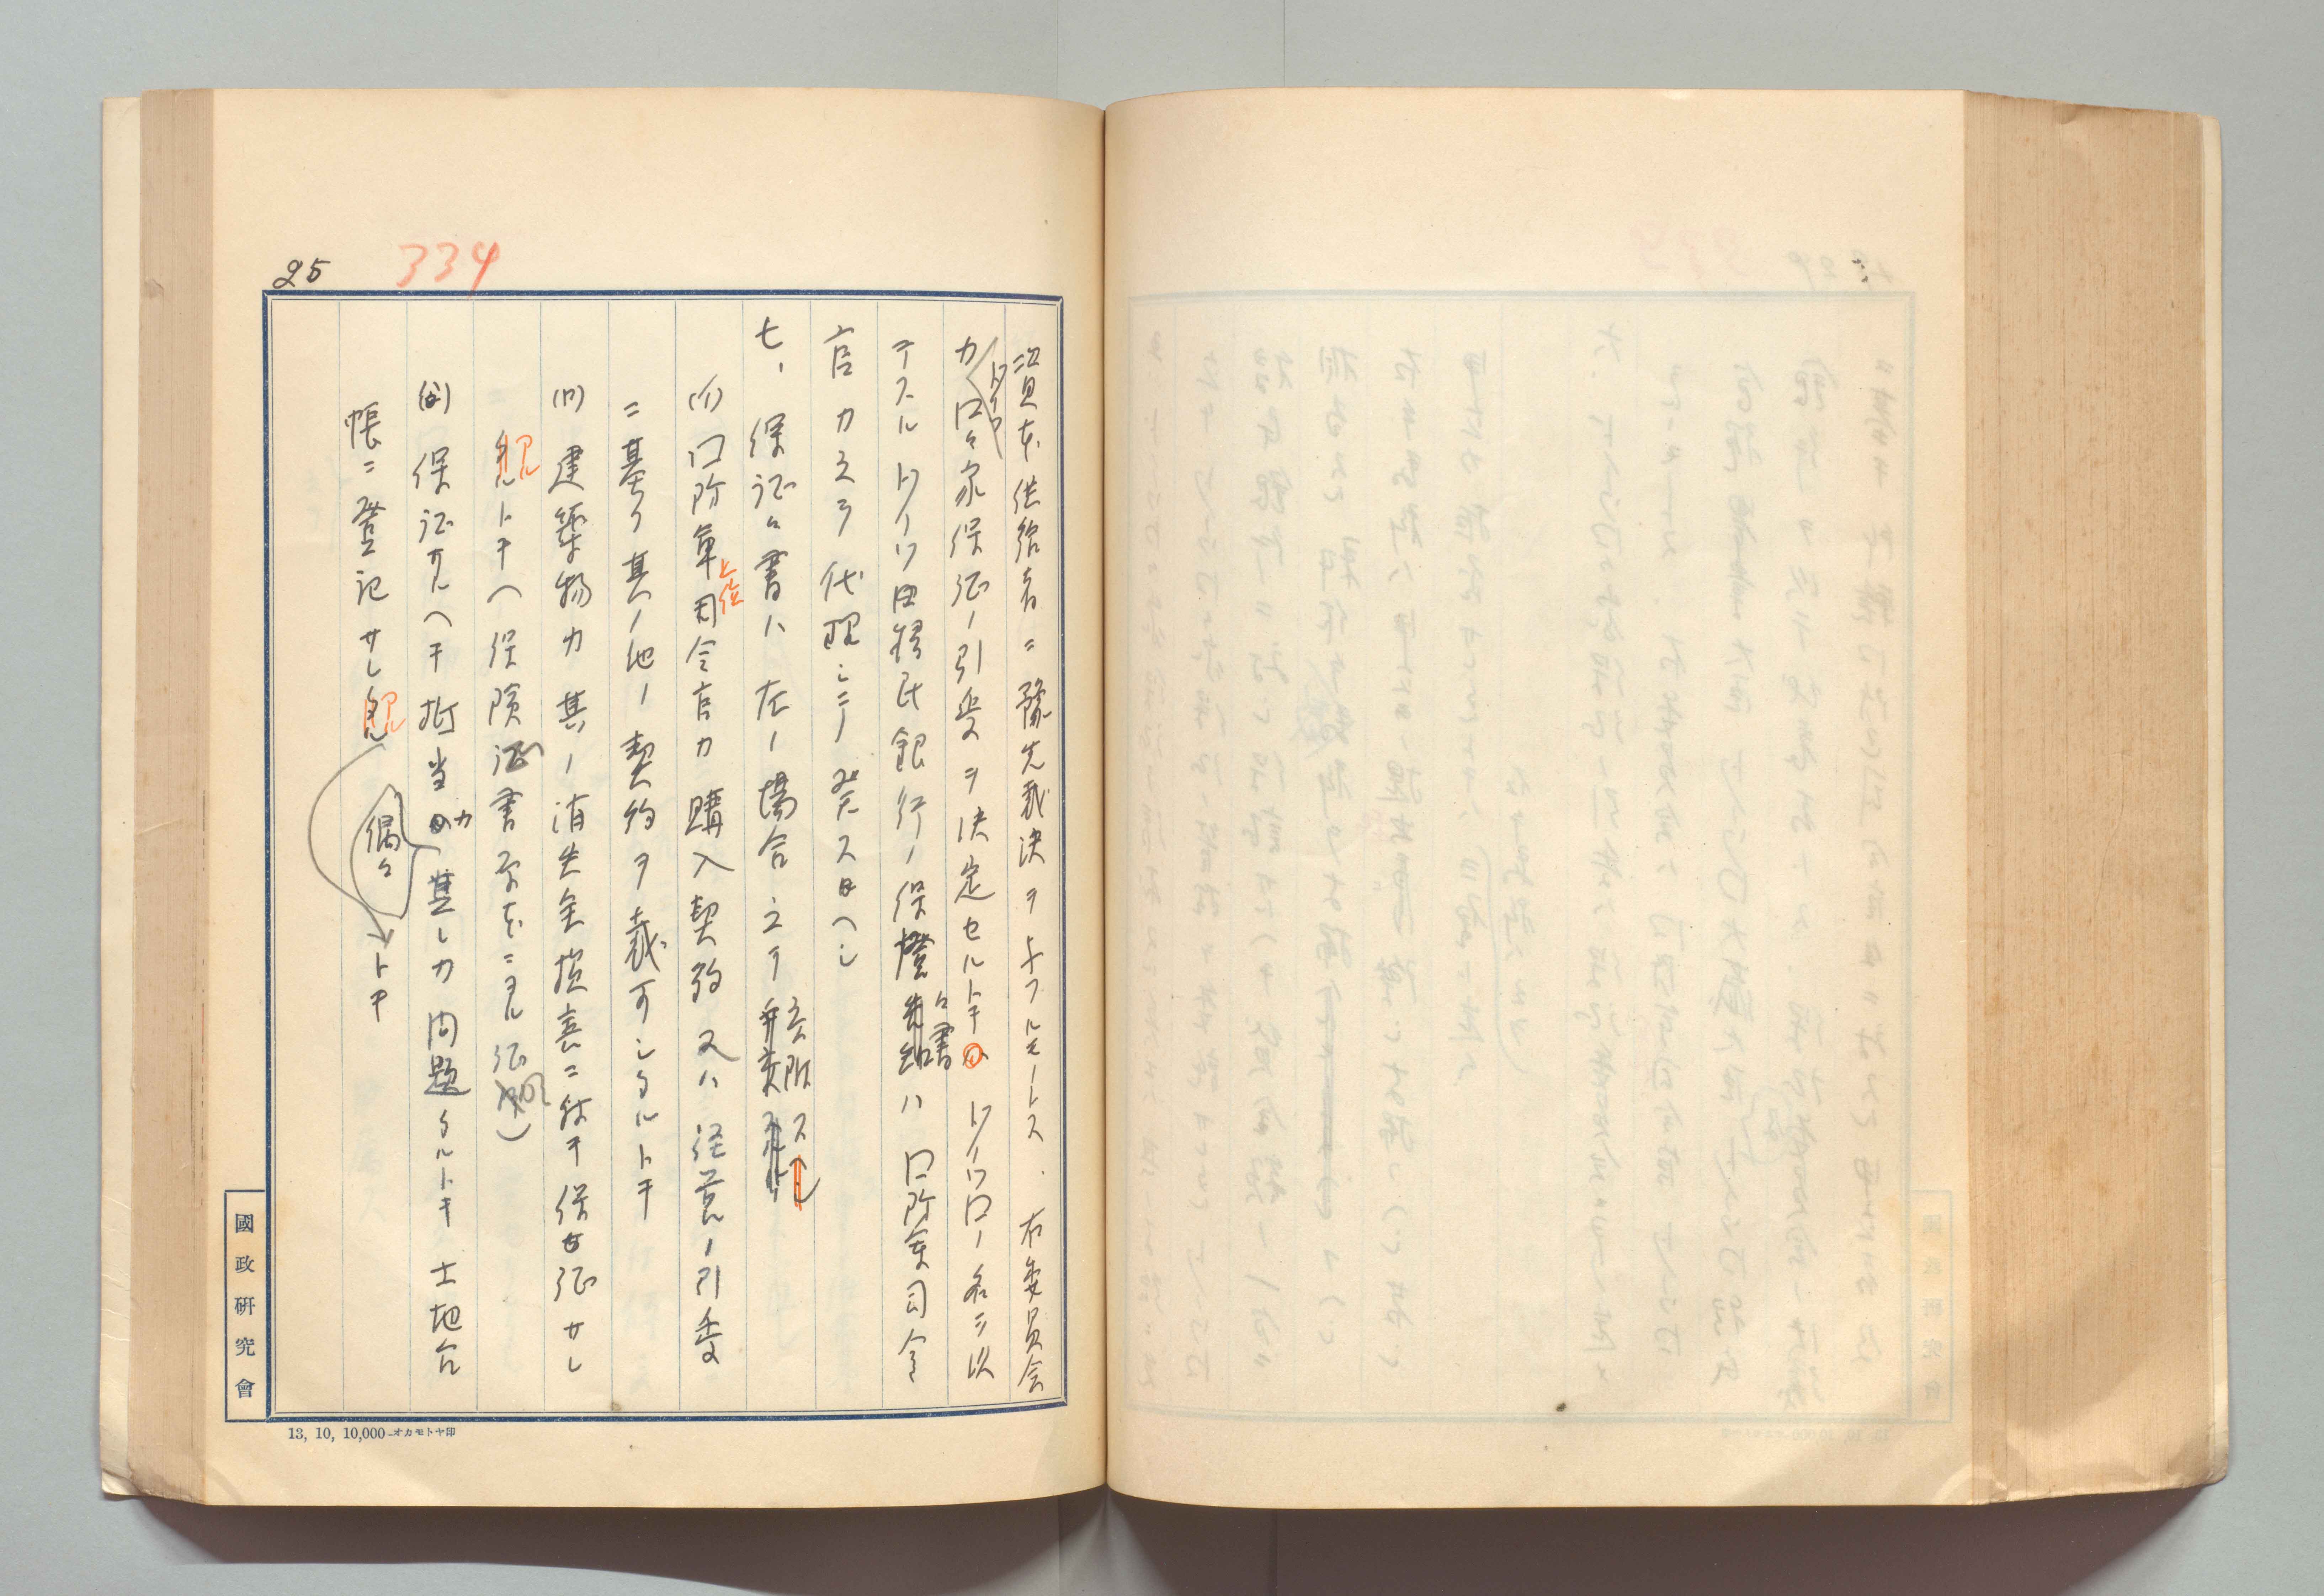 25
334
資本供給者ニ豫先裁決ヲ与フルモノトス．右委員会
カドイツ國家保証ノ引受ヲ決定セルトキ ドイツ國ノ名ヲ以
テスルドイツ国民銀行ノ保證書ハ 国防軍司令
官カ之ヲ代理シテ発スヘシ
七、保証書ハ左ノ場合之ヲ交附ス
(イ) 国防軍上位司令官カ購入契約又ハ経営ノ引受
ニ基ク其ノ他ノ契約ヲ裁可シタルトキ
(ロ) 建築物カ其ノ消失全損害ニ付キ保証サレ
アルトキ(保険証書原本ニヨル証)
(ハ) 保証サルヘキ抵当カ其レカ問題タルトキ土地台
帳ニ登記サレアル偶々トキ
國政研究會
13, 10, 10,000—オカモトヤ印